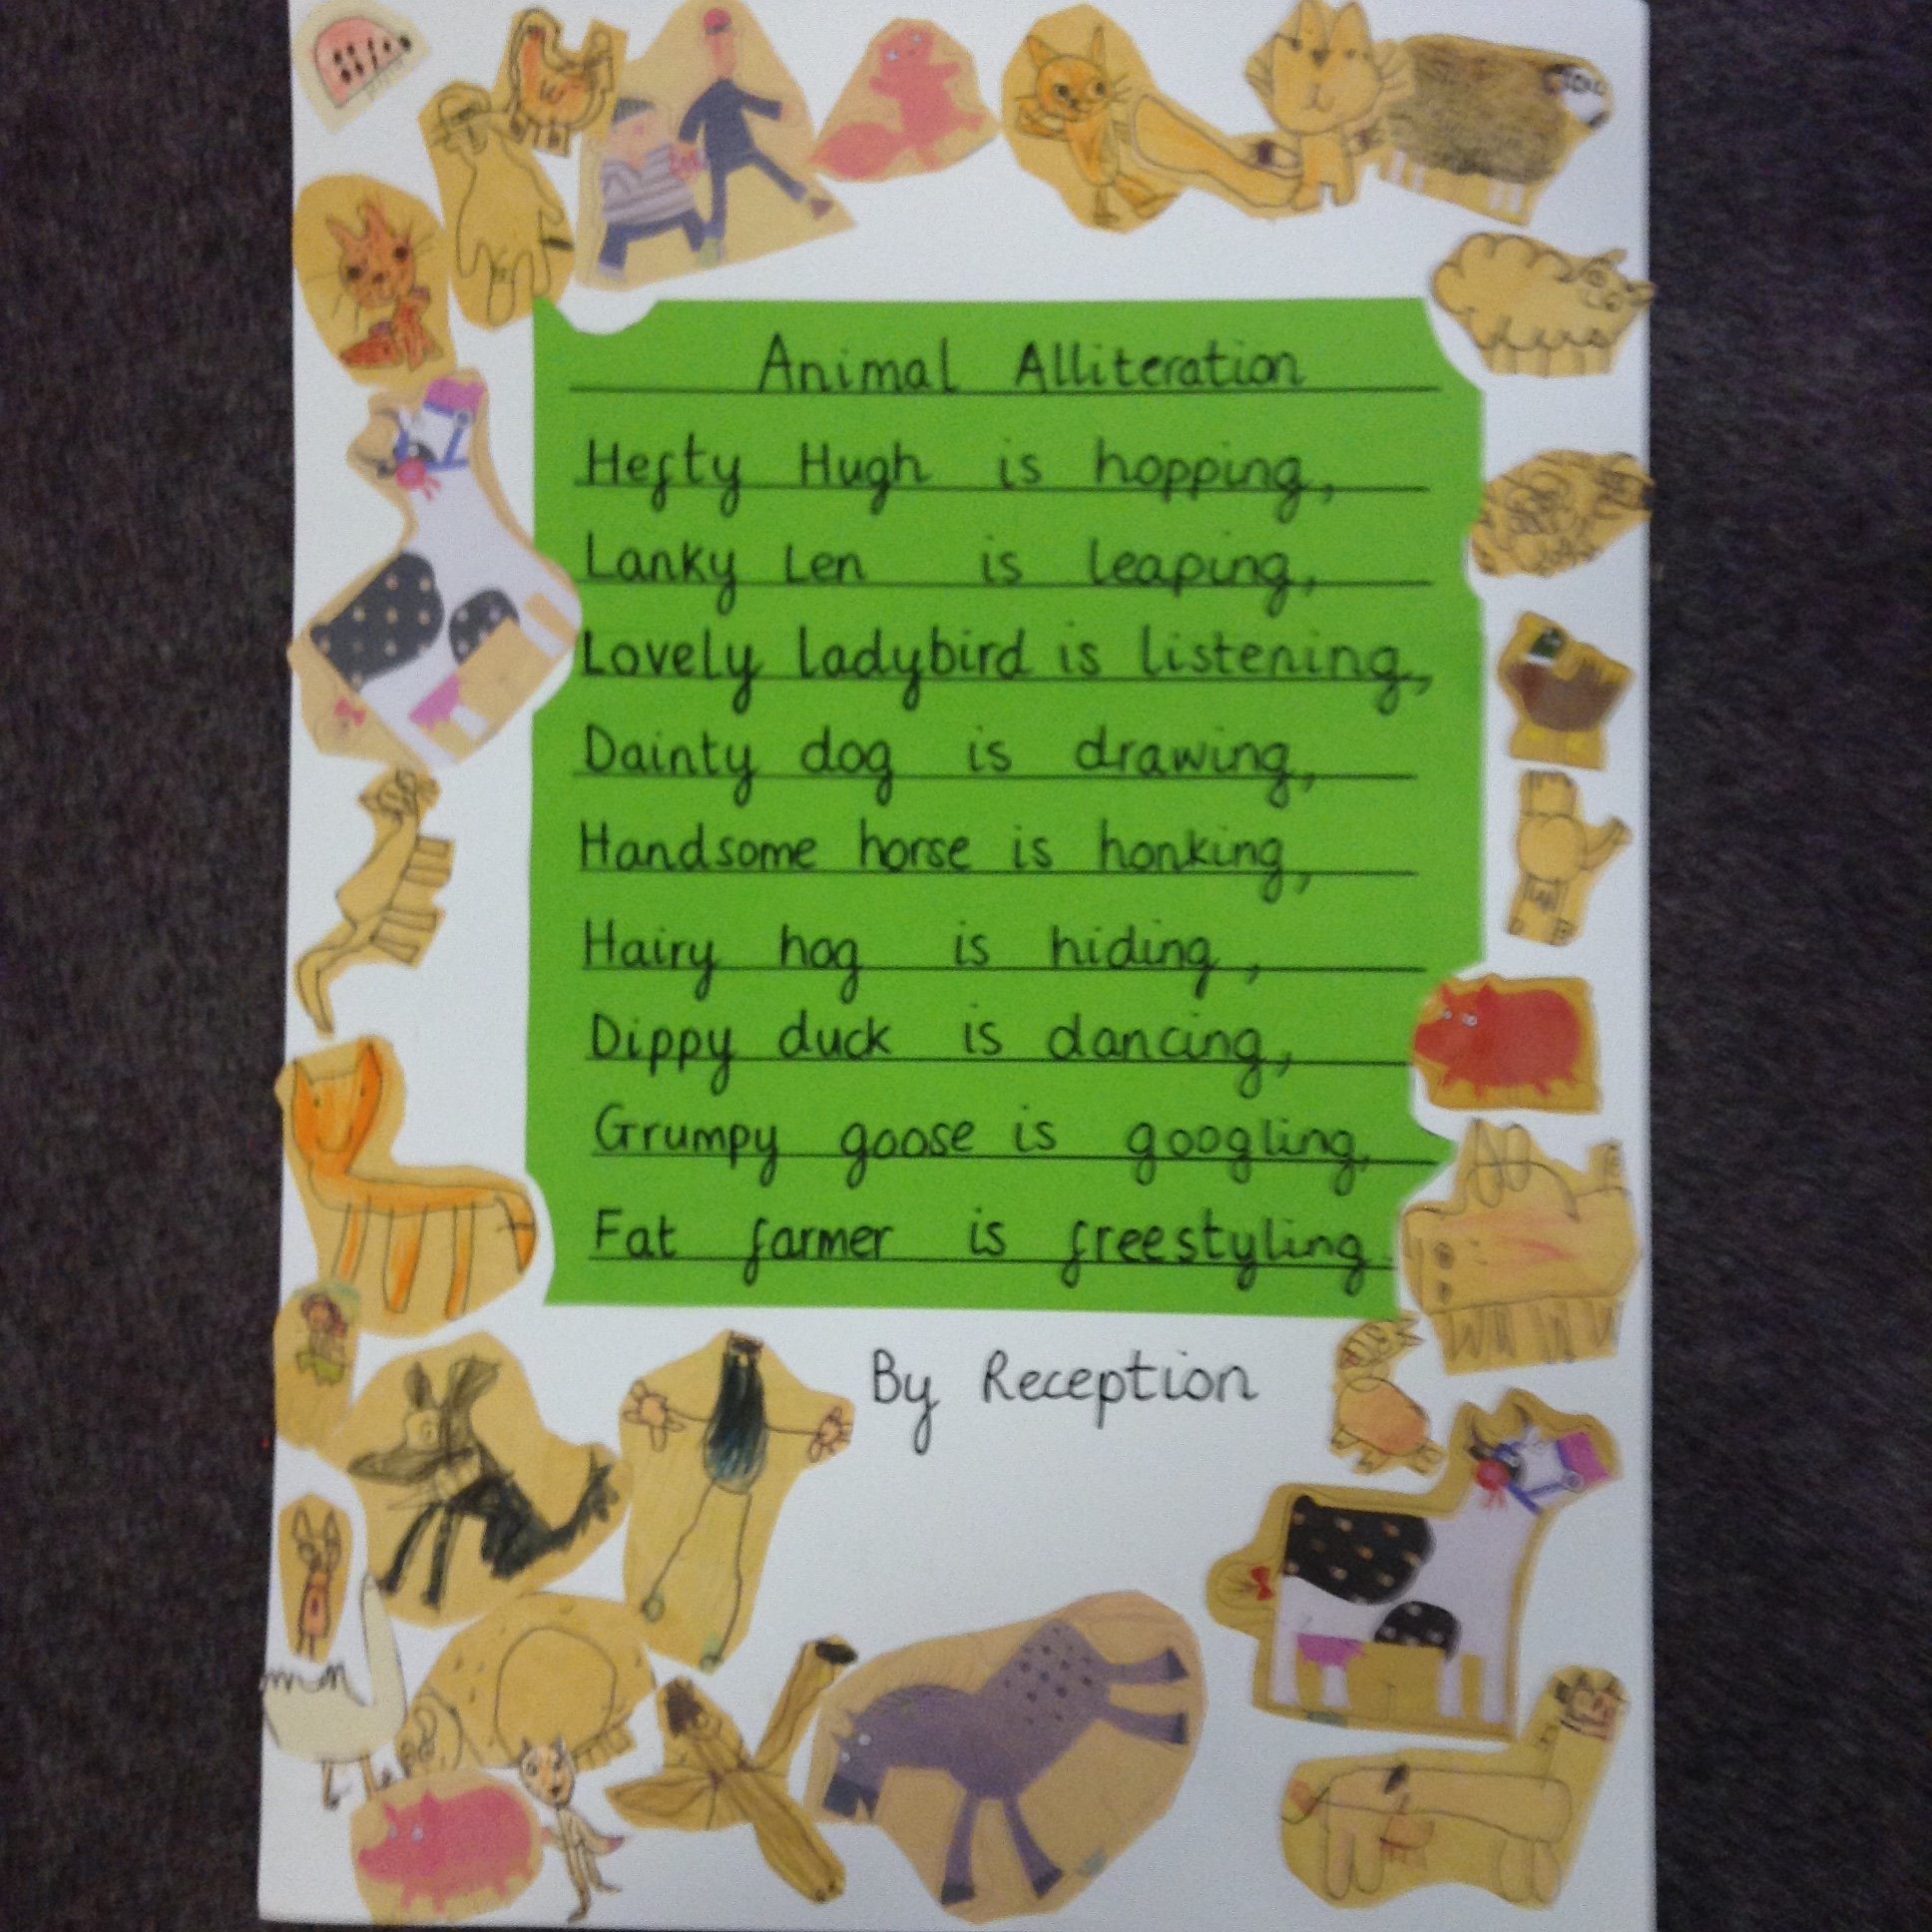 Animal Alliteration
Hefty Hugh is hopping,
Lanky Len is leaping,
Lovely ladybird is listening,
Dainty dog is drawing,
Handsome horse is honking,
Hairy hog is hiding,
Dippy duck is dancing,
Grumpy goose is googling,
Fat farmer is freestyling.
By Reception